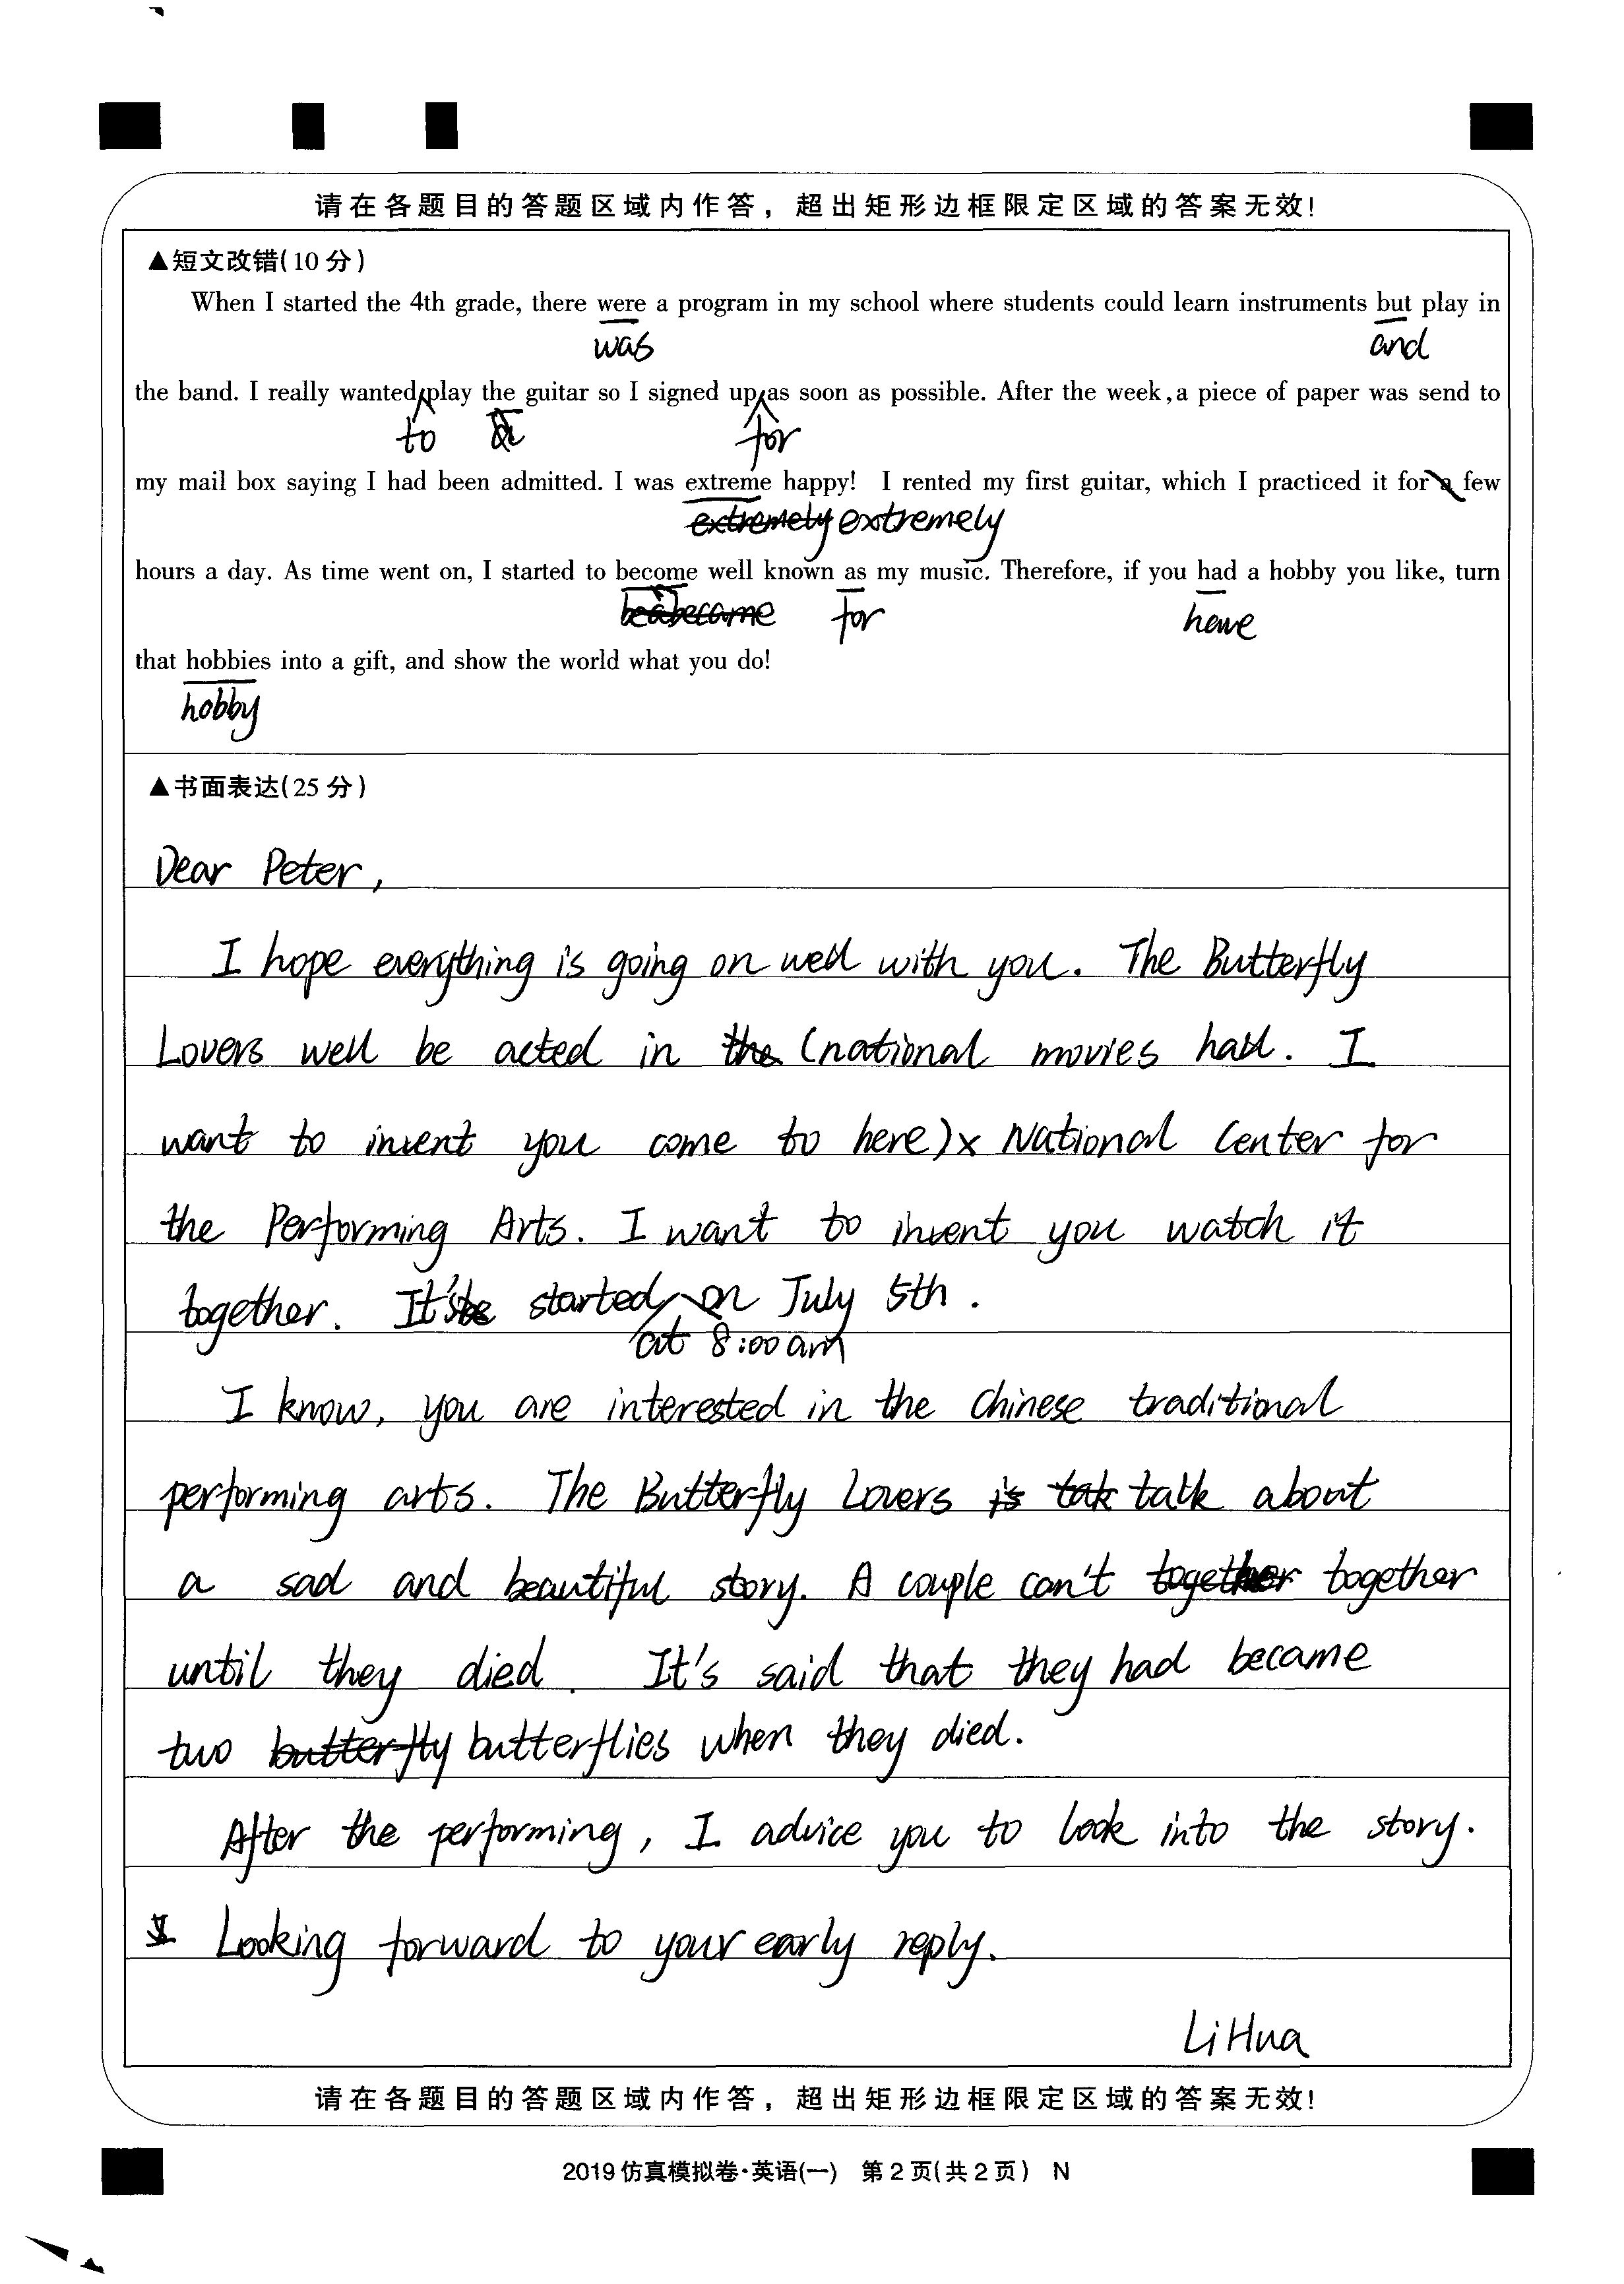 请在各题目的答题区域内作答，超出矩形边框限定区域的答案无效!
▲短文改错(10分)
When I started the 4th grade, there were a program in my school where students could learn instruments but play in
was and
the band. I really wanted play the guitar so I signed up as soon as possible. After the week, a piece of paper was send to
to for
my mail box saying I had been admitted. I was extreme happy! I rented my first guitar, which I practiced it for a few
extremely extremely
hours a day. As time went on, I started to become well known as my music. Therefore, if you had a hobby you like, turn
became for have
that hobbies into a gift, and show the world what you do!
hobby
▲书面表达(25分)
Dear Peter,
I hope everything is going on well with you. The Butterfly
Lovers well be acted in the (national movies hall. I
want to invent you come to here)x National Center for
the Performing Arts. I want to invent you watch it
together. It's be started on July 5th.
at 8:00 am
I know, you are interested in the Chinese traditional
performing arts. The Butterfly Lovers is tak talk about
a sad and beautiful story. A couple can't together together
until they died. It's said that they had became
two butterfly butterflies when they died.
After the performing, I advice you to look into the story.
I Looking forward to your early reply.
Li Hua
请在各题目的答题区域内作答，超出矩形边框限定区域的答案无效!
2019仿真模拟卷·英语(一) 第2页(共2页) N